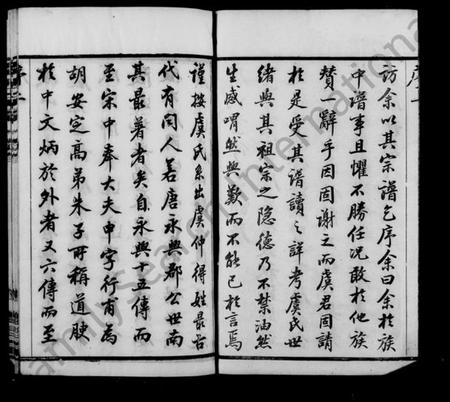 序一
訪余以其宗譜乞序余曰余於族
中譜事且懼不勝任况敢於他族
贊一辭乎固固謝之而虞君固請
於是受其譜讀之詳考虞氏世
緒與其祖宗之隐德乃不禁油然
生感喟然興歎而不能已於言焉
謹按虞氏系出虞仲得姓最古
代有聞人若唐永興郡公世南
其最著者矣自永興十五傳而
至宗中奉大夫申字行甫為
胡安定高弟朱子所稱道腴
於中文炳於外者又六傳而至
序二
familysearch international